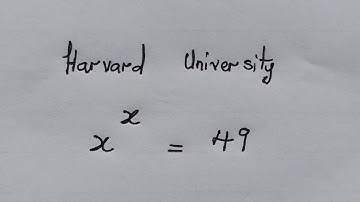 Harvard University
xˣ = 49